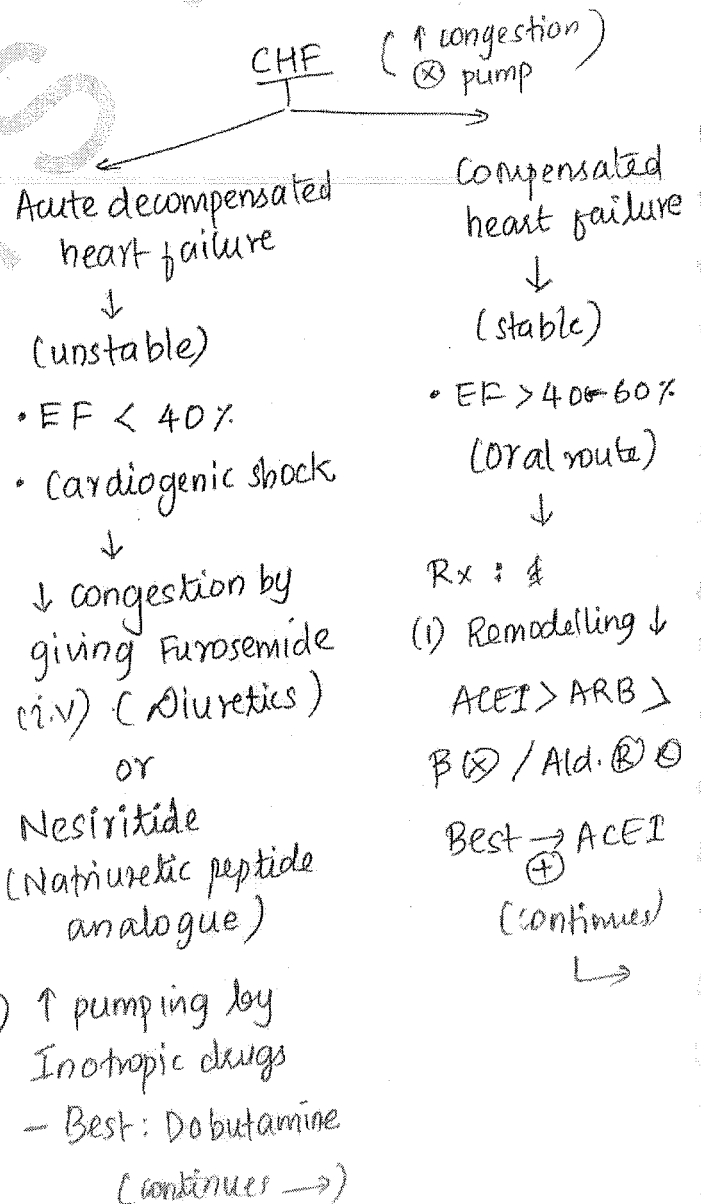 CHF (↑ congestion)
ⓧ pump
Acute decompensated
heart failure
↓
(unstable)
• EF < 40%
• Cardiogenic shock
↓
↓ congestion by
giving Furosemide
(i.v) (Diuretics)
or
Nesiritide
(Natriuretic peptide
analogue)
) ↑ pumping by
Inotropic drugs
- Best: Dobutamine
(continues →)
Compensated
heart failure
↓
(stable)
• EF > 40-60%
(oral route)
↓
Rx :
(1) Remodelling ↓
ACEI > ARB >
β ⓧ / Ald. Ⓡ
Best → ACEI
⊕
(continues)
↳